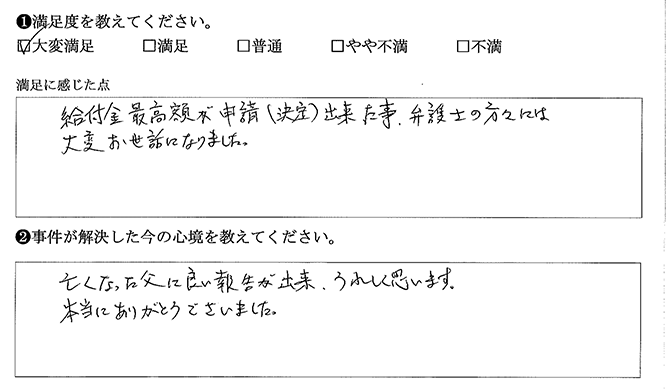 ❶満足度を教えてください。
☑大変満足 □満足 □普通 □やや不満 □不満
満足に感じた点
給付金最高額が申請(決定)出来た事、弁護士の方々には
大変お世話になりました。
❷事件が解決した今の心境を教えてください。
亡くなった父に良い報告が出来、うれしく思います。
本当にありがとうございました。